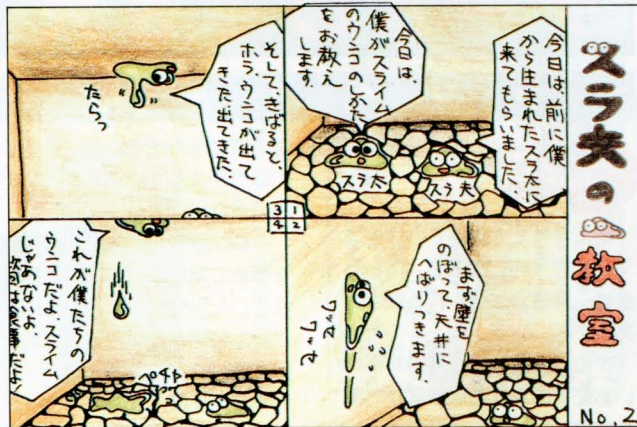 スラ夫の教室
No.2
1
今日は、前に僕
から生まれたスラ太に
来てもらいました。
今日は、
僕がスライム
のウンコのしかた
をお教え
します。
スラ太
スラ夫
2
まず、壁を
のぼって、天井に
へばりつきます。
ワッセ
ワッセ
3
そして、きばると、
ホラ、ウンコが出て
きた出てきた。
たらっ
4
これが僕たちの
ウンコだよ。スライム
じゃあないよ。
次回は食事だよ!
ペチャッ